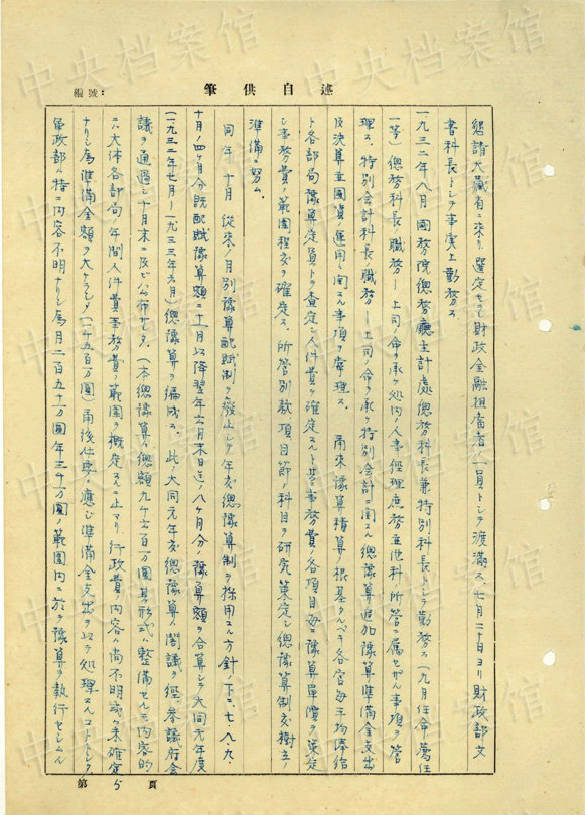 編號：
筆供自述
懇請大藏省ニ來リ選定セラレ財政金融担當者ノ一員トシテ渡滿ス、七月二十日ヨリ財政部文
書科長トシテ事實上勤務ス
一九三二年八月 國務院總務廳主計處總務科長兼特別科長トシテ勤務ス（九月任命薦任
一等）總務科長ノ職務ー上司ノ命ヲ承ケ處內ノ人事經理庶務並他科ノ所管ニ屬セザル事項ヲ管
理ス。特別會計科長ノ職務ー上司ノ命ヲ承ケ特別會計ニ關スル總豫算追加豫算準備金支出
及決算並國資ノ運用ニ關スル事項ヲ掌理ス。 爾來豫算積算ノ根基タルベキ各官每平均俸給
ト各部局豫算定員トヲ査定シ人件費ヲ確定スルト共ニ事務費ノ各項目每ニ豫算單價ヲ策定
シ事務費ノ範圍程度ヲ確定ス。所管別款項目節ノ科目ヲ研究策定シ總豫算制度樹立ノ
準備ニ努ム。
同年十月 從來ノ月別豫算配賦制ヲ廢止シテ年度總豫算制ヲ採用スル方針ノ下ニ七、八、九、
十月ノ四ヶ月分既配賦豫算額ニ十一月以降翌年六月末日迄ノ八ヶ月分ノ豫算額ヲ合算シテ大同元年度
（一九三二年七月ー一九三三年六月）總豫算ヲ編成ス。此ノ大同元年度總豫算ハ閣議ヲ經、參議府會
議ヲ通過シ十月末ニ及ビ公布セラレタ。（本總豫算ノ總額九千六百万圓其ノ形式ハ整備セルモ內容的
ニハ大体各部局ノ年間人件費事務費ノ範圍ヲ概定スルニ止マリ行政費ノ內容ハ尚不明或ハ未確定
ナリシ為準備金額ヲ大ナラシメ（一千五百万圓）爾後仕事ニ應ジ準備金支出ヲ以テ処理スルコトトシタ、
軍政部ハ特ニ內容不明ナリシ為月二百五十万圓年三千万圓ノ範圍內ニ於テ豫算ヲ執行セシムル
第 5 頁
中央档案馆